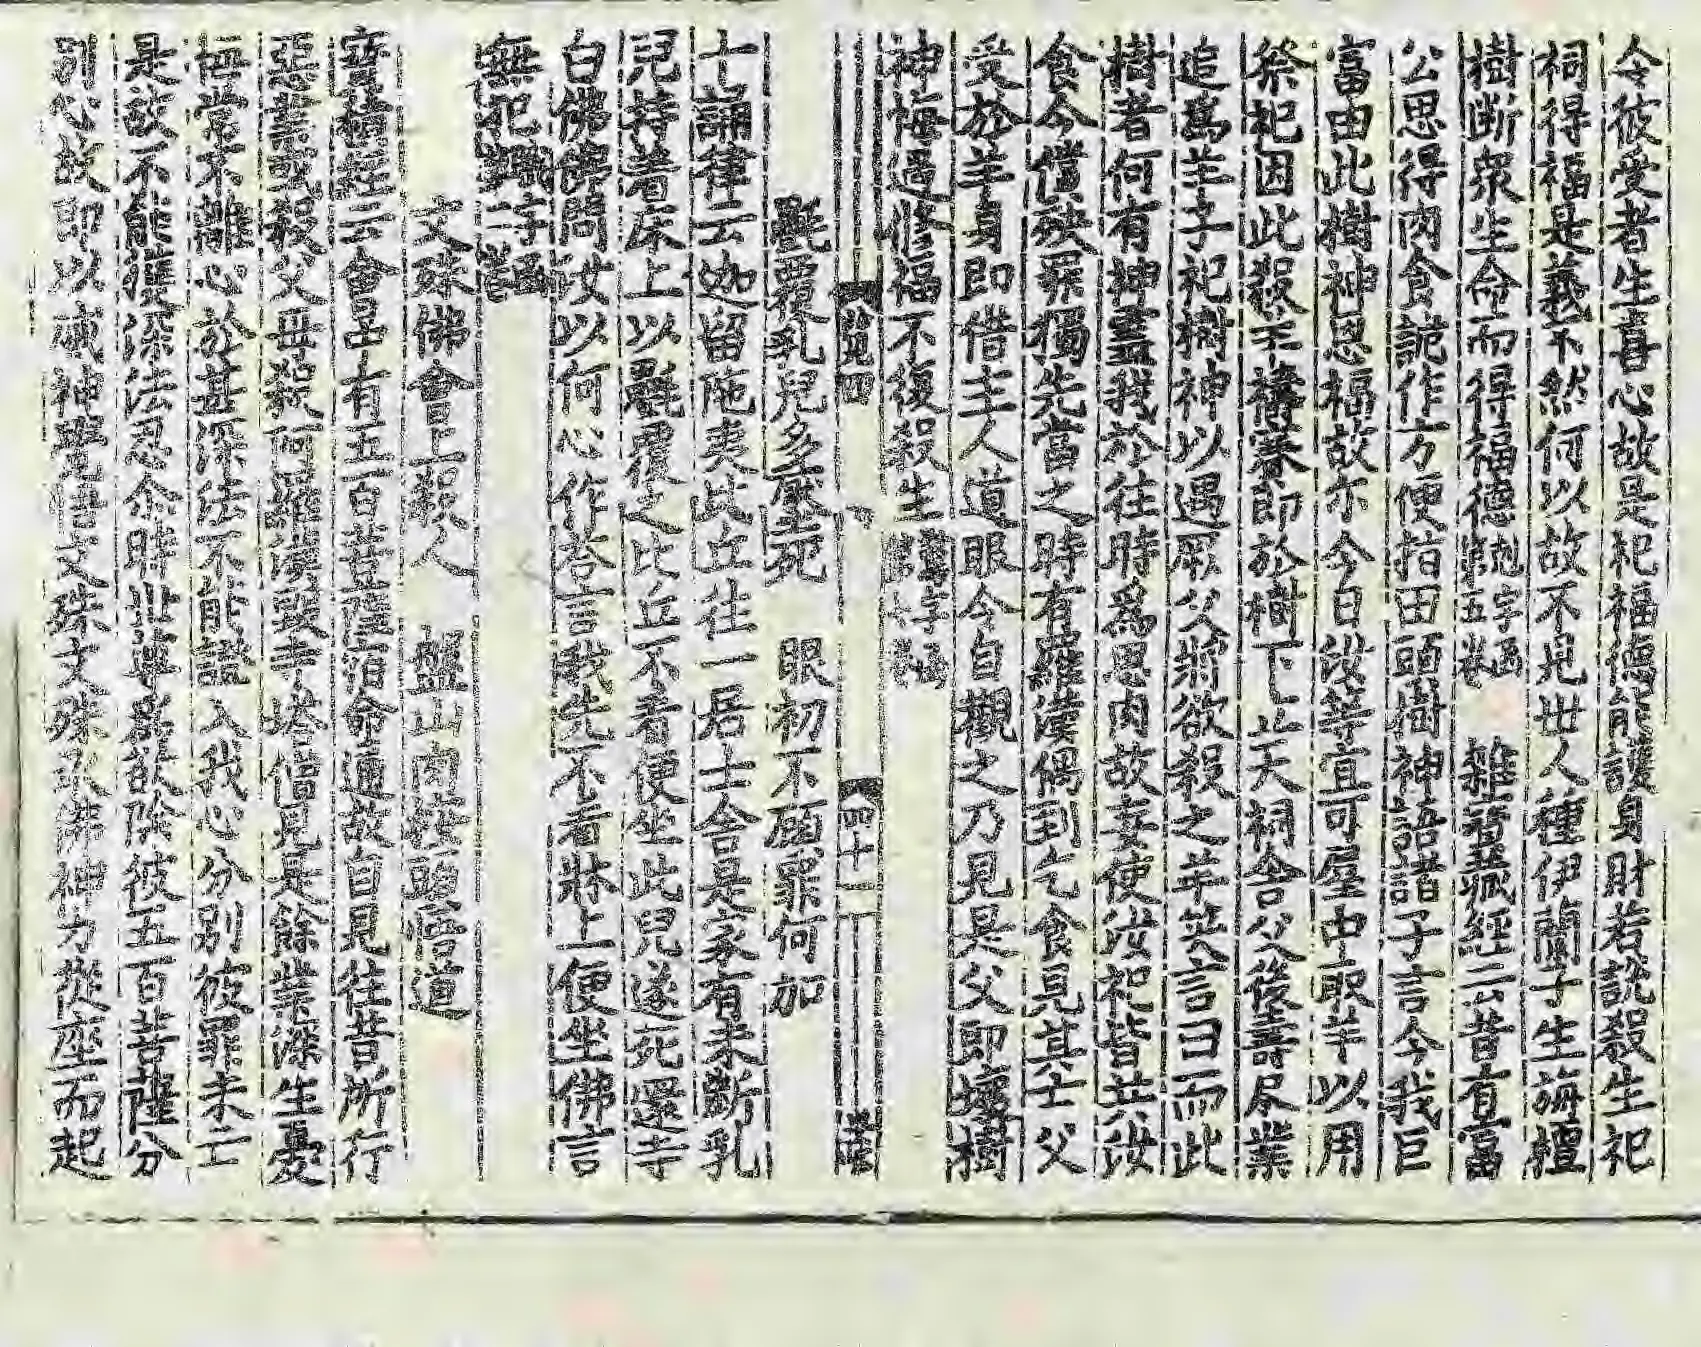 令彼受者生喜心故是祀福德能護身財若說殺生祀
祠得福是義不然何以故不見世人種伊蘭子生旃檀
樹斷衆生命而得福德 雜寶藏經云昔有富
公思得肉食詭作方便指田頭樹神語諸子言今我巨
富由此樹神恩福故尒今日汝等宜可屋中取羊以用
祭祀因此殺羊禱賽即於樹下立天祠舍父後壽尽業
追爲羊子祀樹神以遇厥父將欲殺之羊笑言曰而此
樹者何有神靈我於往時爲思肉故妄使汝祀皆共汝
食今償殃罪獨先當之時有羅漢偶到乞食見其亡父
受於羊身即借主人道眼令自觀之乃見是父即壞樹
神悔過修福不復殺生
四 四十一
氎覆乳兒多壓死 眼初不顧罪何加
十誦律云迦留陁夷比丘往一居士舍是家有未斷乳
兒持著床上以氎覆之比丘不看便坐此兒遂死還寺
白佛佛問汝以何心作荅言我先不看牀上便坐佛言
無犯
文殊佛會上殺人 盤山肉案頭悟道
寶積經云會中有五百菩薩宿命通故自見往昔所行
惡業或殺父母殺阿羅漢毀寺塔僧見是餘業深生憂
悔常不離心於甚深法不能證入我心分別彼罪未亡
是故不能獲深法忍尒時世尊爲欲除彼五百菩薩分
別心故即以威神覺悟文殊文殊承佛神力從座而起